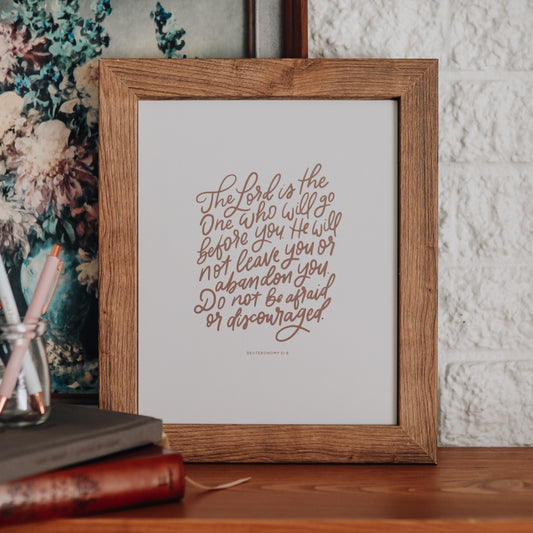 The Lord is the
One who will go
before you. He will
not leave you or
abandon you.
Do not be afraid
or discouraged.
DEUTERONOMY 31:8